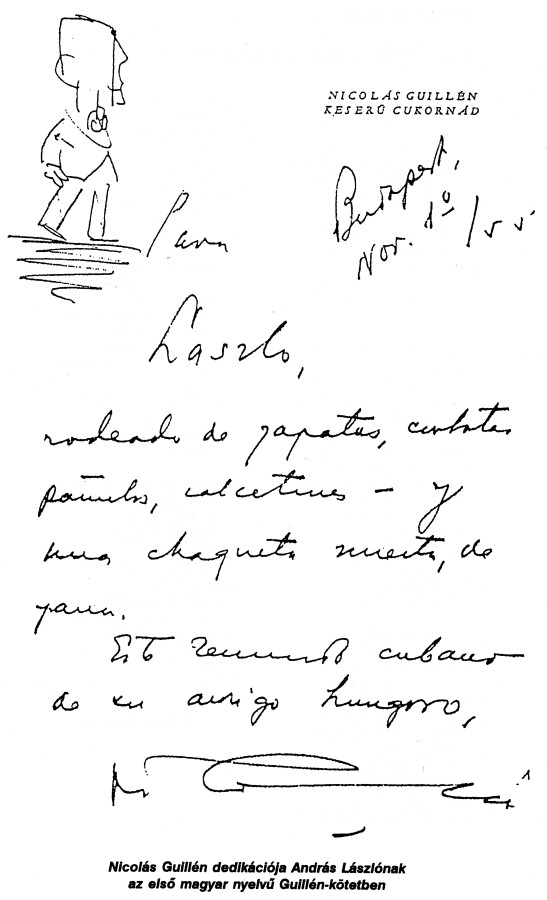 NICOLÁS GUILLÉN
KESERŰ CUKORNÁD
Budapest,
Nov. 1º/55
Para
László,
rodeado de zapatos, corbatas
pañuelos, calcetines – y
una chaqueta muerta, de
pana.
Esto recuerdo cubano
de su amigo húngaro,
Nicolás Guillén dedikációja András Lászlónak
az első magyar nyelvű Guillén-kötetben